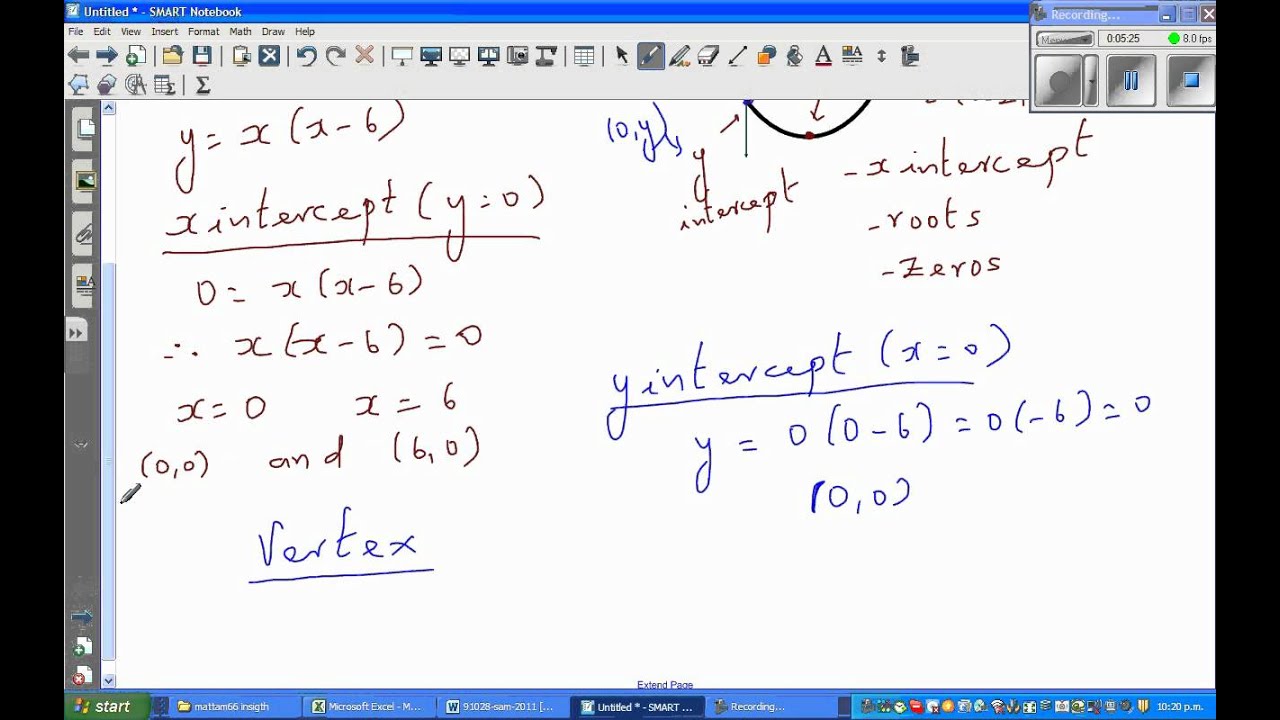 Untitled * - SMART Notebook
File Edit View Insert Format Math Draw Help
Recording...
0:05:25 8.0 fps
y = x (x - 6)
x intercept ( y = 0 )
0 = x (x - 6)
∴ x (x - 6) = 0
x = 0 x = 6
(0,0) and (6,0)
Vertex
(0,y)
y
intercept
- x intercept
- roots
- zeros
y intercept (x = 0)
y = 0 (0 - 6) = 0 (-6) = 0
(0,0)
Extend Page
start
mattam66 insigth
Microsoft Excel - M...
91028-sam-2011 [...
Untitled * - SMART ...
Recording...
10:20 p.m.